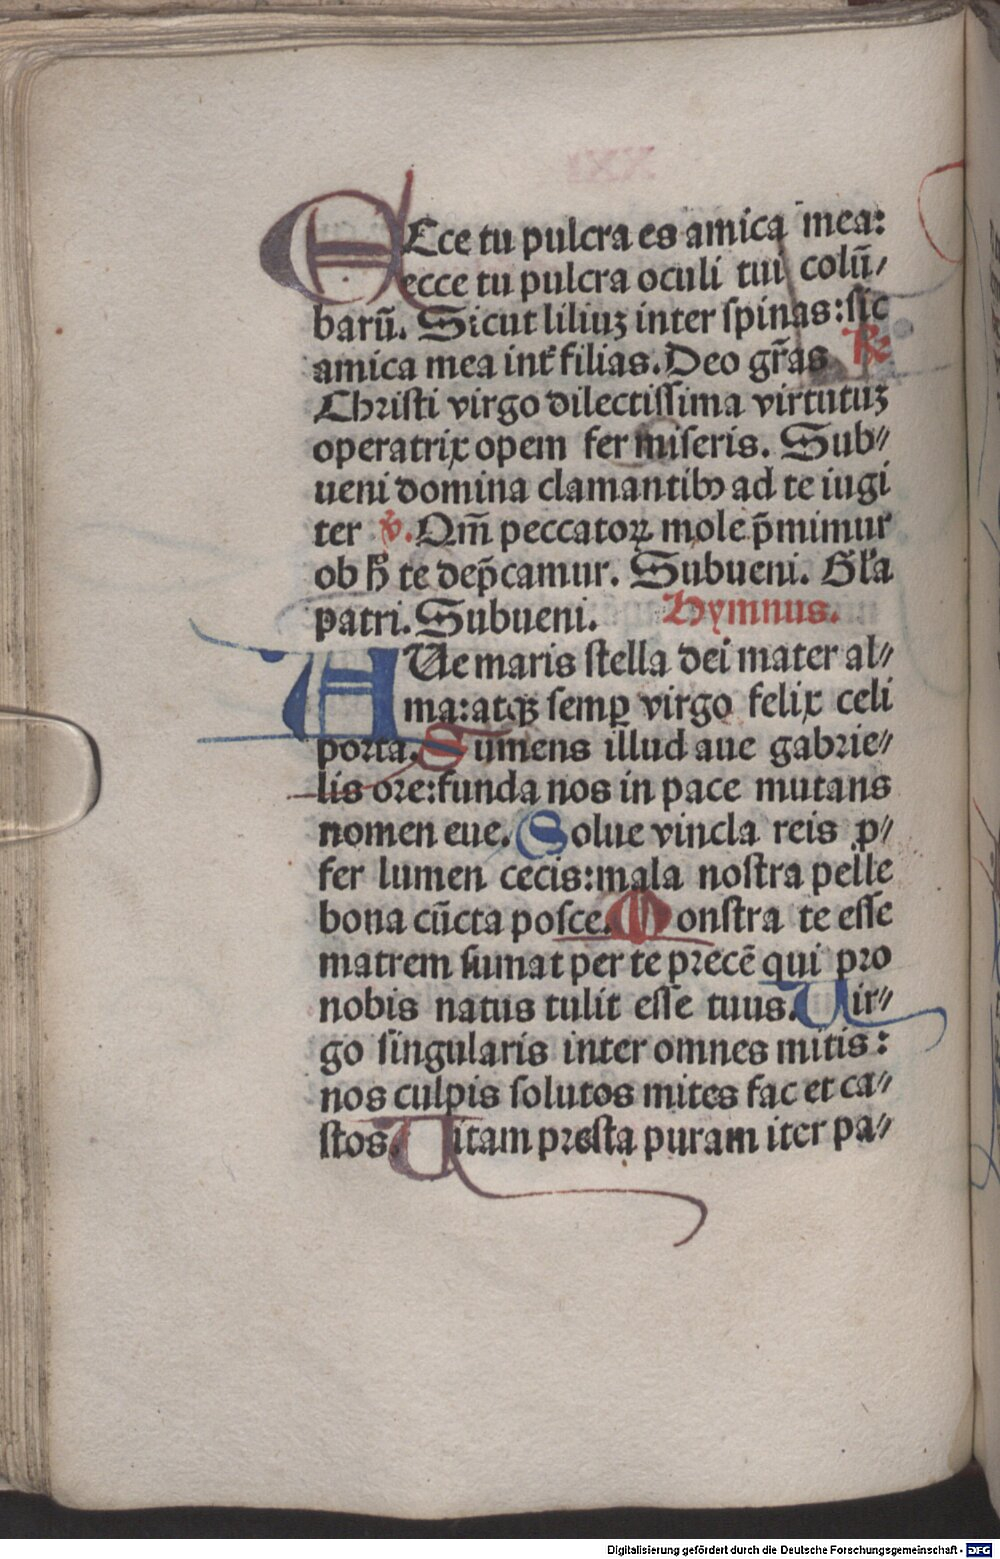 EEcce tu pulcra es amica mea:
ecce tu pulcra oculi tui colū⸗
barū. Sicut liliuꝫ inter ſpinas: ſic
amica mea int̄ filias. Deo gr̄as ℟
Chriſti virgo dilectiſſima virtutuꝫ
operatrix opem fer miſeris. Sub⸗
ueni domina clamantibꝰ ad te iugi
ter ℣. Qm̄ peccatoꝝ mole p̄mimur
ob h̄ te dep̄camur. Subueni. Gl̄a
patri. Subueni. Hymnus.
AUe maris ſtella dei mater al⸗
ma: atqꝫ ſemꝑ virgo felix celi
porta. Sumens illud aue gabrie⸗
lis ore: funda nos in pace mutans
nomen eue. Solue vincla reis p⸗
fer lumen cecis: mala noſtra pelle
bona cūcta poſce. Monſtra te eſſe
matrem ſumat per te precē qui pro
nobis natus tulit eſſe tuus. Uir⸗
go ſingularis inter omnes mitis:
nos culpis ſolutos mites fac et ca⸗
ſtos. Uitam preſta puram iter pa⸗
Digitalisierung gefördert durch die Deutsche Forschungsgemeinschaft - DFG